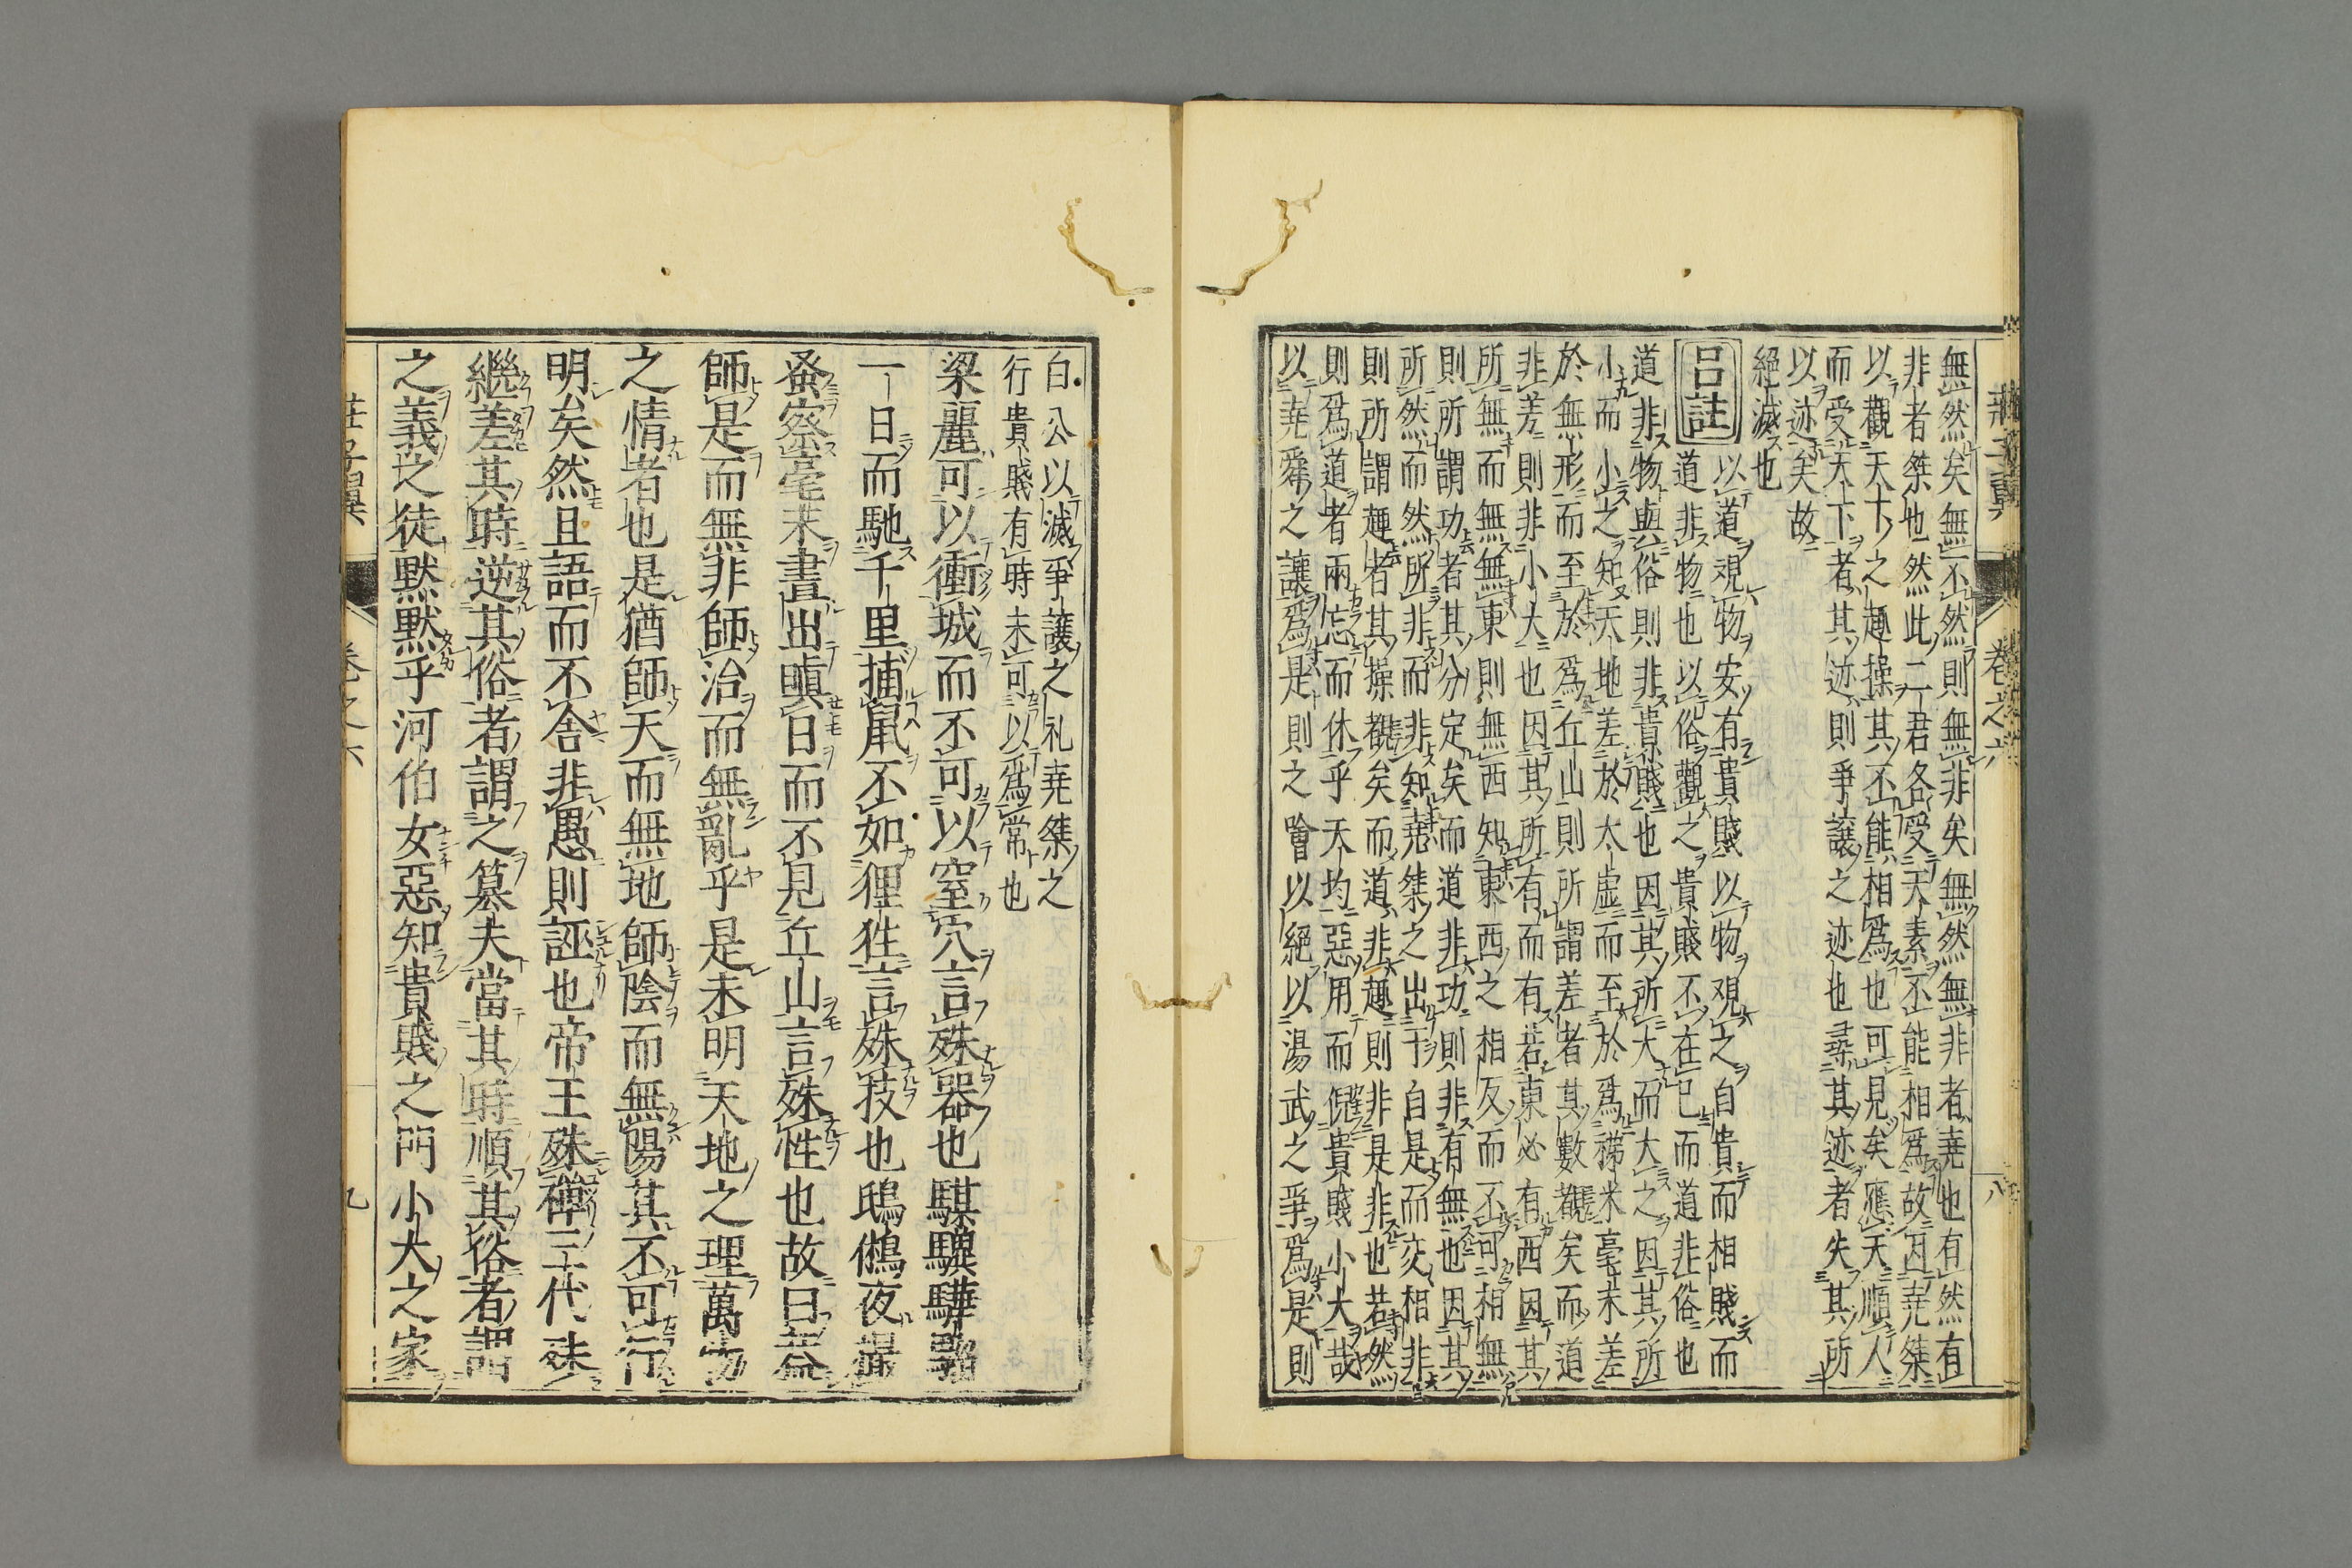 莊子翼 卷之六 八
無然矣無不然則無非矣無然無非者堯也有然有
非者桀也然此二君各受天素不能相爲故因堯桀
以觀天下之趣操其不能相爲也可見矣應天順人
而受天下者其迹則爭讓之迹也尋其迹者失其所
以迹矣故
絕滅也
呂註
以道覌物安有貴賤以物覌之自貴而相賤而
道非物也以俗觀之貴賤不在已而道非俗也
道非物與俗則非貴賤也因其所大而大之因其所
小而小之知天地差於太虛而至於爲稊米毫末差
於無形而至於爲丘山則所謂差者其數覩矣而道
非差則非小大也因其所有而有若東必有西因其
所無而無無東則無西知東西之相反而不可相無
則所謂功者其分定矣而道非功則非有無也因其
所然而然所非而非知堯桀之出于自是而交相非
則所謂趣者其操覩矣而道非趣則非是非也若然
則爲道者兩忘而休乎天均惡用而倪貴賤小大哉
以堯舜之讓爲是則之噲以絕以湯武之爭爲是則
白公以滅爭讓之礼堯桀之
行貴賤有時未可以爲常也
梁麗可以衝城而不可以窒穴言殊器也騏驥驊騮
一日而馳千里捕鼠不如狸狌言殊技也鴟鵂夜撮
蚤察毫末晝出瞋日而不見丘山言殊性也故曰蓋
師是而無非師治而無亂乎是未明天地之理萬物
之情者也是猶師天而無地師陰而無陽其不可行
明矣然且語而不舍非愚則誣也帝王殊禪三代殊
繼差其時逆其俗者謂之篡夫當其時順其俗者謂
之義之徒默默乎河伯女惡知貴賤之門小大之家
莊子翼 卷之六 九